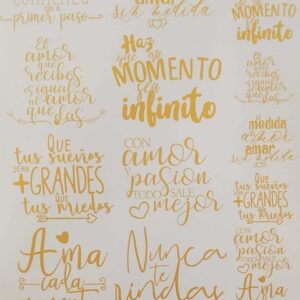 comienza
primer paso
amar
sin medida
El
amor
que
recibes
es igual
al amor
que das
Haz
que este
MOMENTO
sea
infinito
MOMENTO
infinito
El
amor
que
recibes
es igual
al amor
que das
medida
amar
sin medida
QUE
tus sueños
SEAN
+GRANDES
QUE
tus miedos
CON
amor
y
pasión
TODO SALE
mejor
QUE
tus sueños
+GRANDES
tus miedos
Ama
cada
Nunca
te
rindas
CON
amor
y
pasión
TODO SALE
mejor
Ama